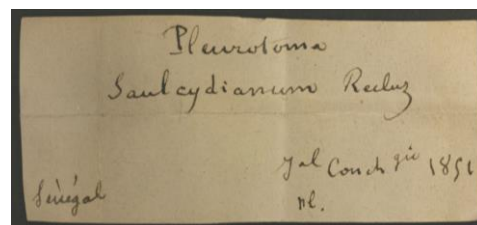 Pleurotoma
Saulcydianum Recluz
Jal Conchgie 1851
Sénégal
pl.